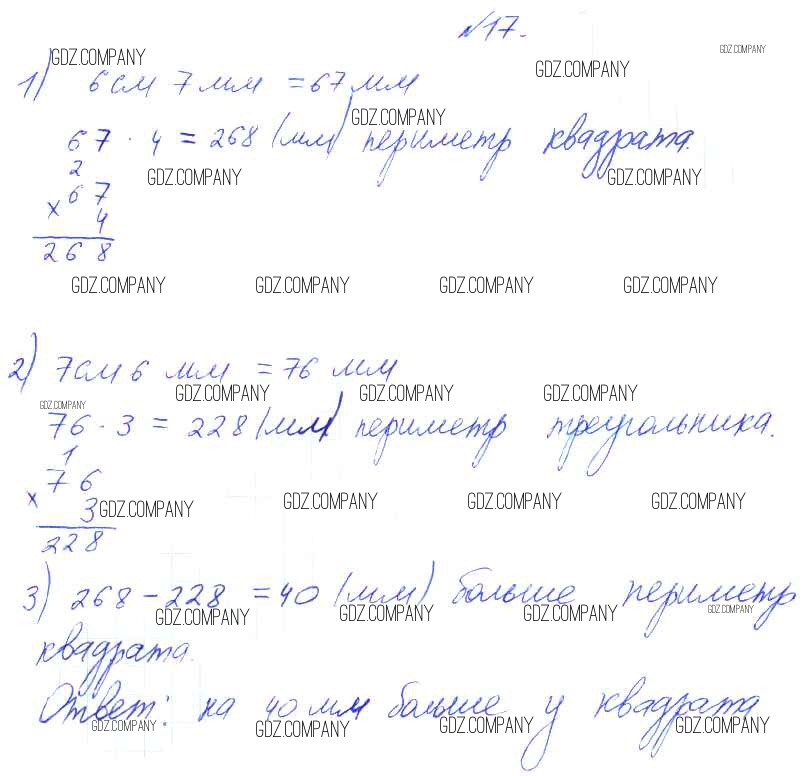 №17.
GDZ.COMPANY GDZ.COMPANY GDZ.COMPANY
1) 6 см 7 мм = 67 мм
GDZ.COMPANY
67 · 4 = 268 (мм) периметр квадрата.
2
GDZ.COMPANY GDZ.COMPANY
× 67
4
268
GDZ.COMPANY GDZ.COMPANY GDZ.COMPANY GDZ.COMPANY
2) 7 см 6 мм = 76 мм
GDZ.COMPANY GDZ.COMPANY GDZ.COMPANY GDZ.COMPANY
76 · 3 = 228 (мм) периметр треугольника.
1
× 76
3
GDZ.COMPANY GDZ.COMPANY GDZ.COMPANY GDZ.COMPANY
228
3) 268 - 228 = 40 (мм) больше периметр
GDZ.COMPANY GDZ.COMPANY GDZ.COMPANY GDZ.COMPANY
квадрата.
Ответ: на 40 мм больше у квадрата
GDZ.COMPANY GDZ.COMPANY GDZ.COMPANY GDZ.COMPANY